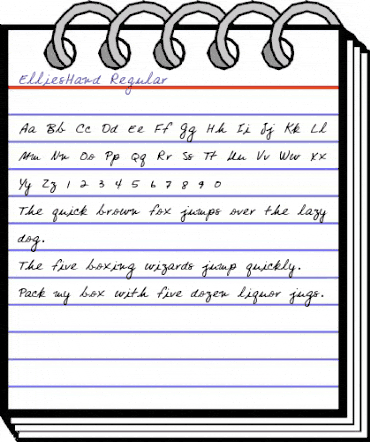 ElliesHand Regular
Aa Bb Cc Dd Ee Ff Gg Hh Ii Jj Kk Ll
Mm Nn Oo Pp Qq Rr Ss Tt Uu Vv Ww Xx
Yy Zz 1 2 3 4 5 6 7 8 9 0
The quick brown fox jumps over the lazy
dog.
The five boxing wizards jump quickly.
Pack my box with five dozen liquor jugs.